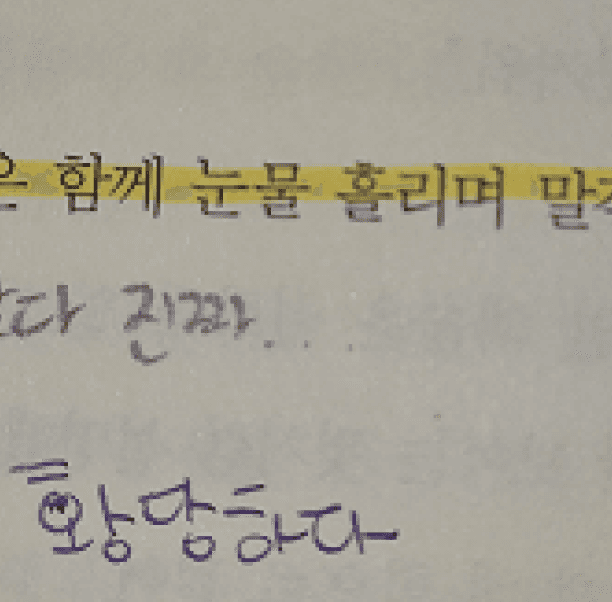 은 함께 눈물 흘리며 말
다 진짜...
황당하다